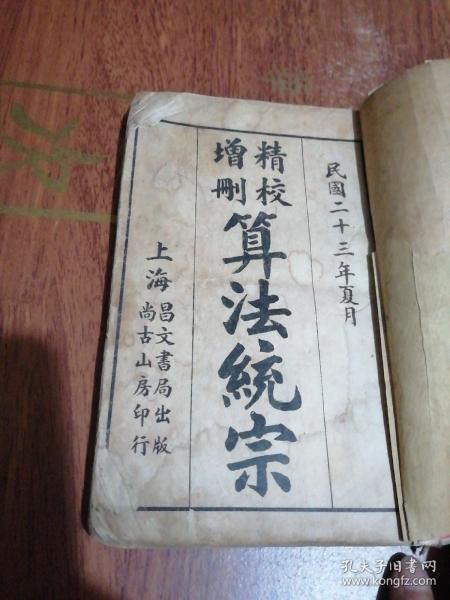 民國二十三年夏月
精校
增刪
算法統宗
上海
昌文書局出版
尚古山房印行
孔夫子旧书网
www.kongfz.com